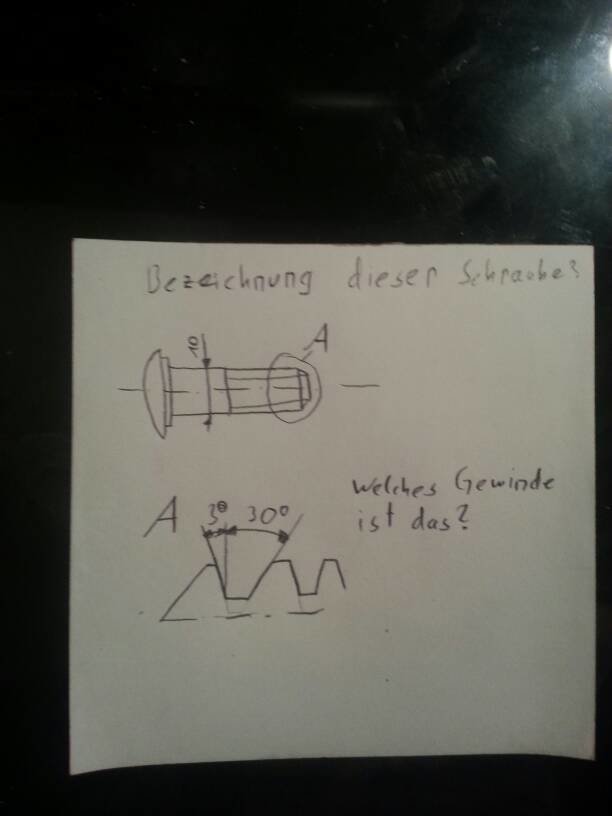 Bezeichnung dieser Schraube?
A
A 3° 30°
Welches Gewinde
ist das?